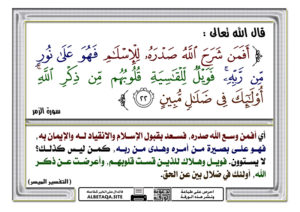 قال الله تعالى :
﴿ أَفَمَن شَرَحَ ٱللَّهُ صَدۡرَهُۥ لِلۡإِسۡلَٰمِ فَهُوَ عَلَىٰ نُورٖ
مِّن رَّبِّهِۦۚ فَوَيۡلٞ لِّلۡقَٰسِيَةِ قُلُوبُهُم مِّن ذِكۡرِ ٱللَّهِۚ
أُوْلَٰٓئِكَ فِي ضَلَٰلٖ مُّبِينٍ ٢٢ ﴾
سورة الزمر
أي أفمن وسع الله صدره، فسعد بقبول الإسلام والانقياد له والإيمان به،
فهو على بصيرة من أمره وهدى من ربه، كمن ليس كذلك؟
لا يستوون. فويل وهلاك للذين قست قلوبهم، وأعرضت عن ذكر
الله، أولئك في ضلال بين عن الحق.
(التفسير الميسر)
ALBETAQA.SITE
احرص على طباعة
ونشر هذه الورقة